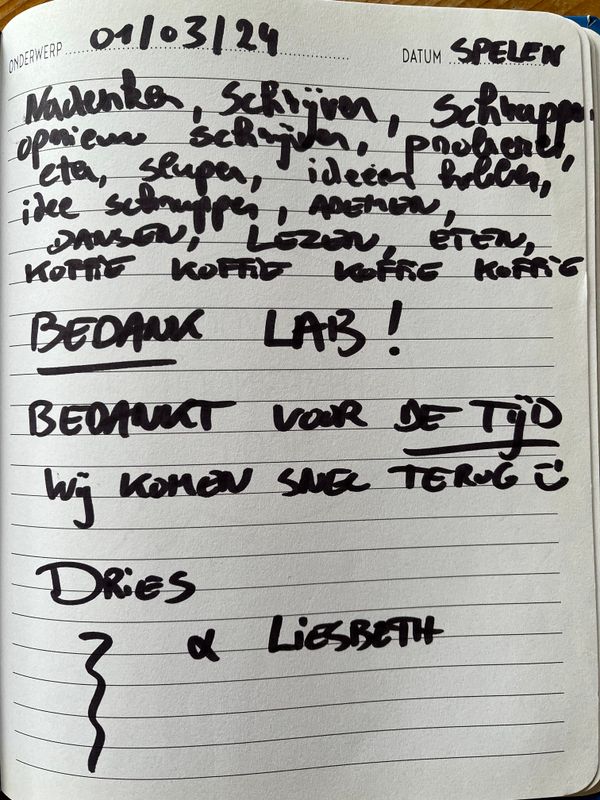 ONDERWERP 01/03/24 DATUM SPELEN
Nadenken, Schrijven, Schrappen
opnieuw schrijven, proberen,
eten, slapen, ideeën hebben,
idee schrappen, ADEMEN,
DANSEN, LEZEN, ETEN,
KOFFIE KOFFIE KOFFIE KOFFIE
BEDANK LAB!
BEDANKT VOOR DE TIJD
Wij KOMEN SNEL TERUG
DRiES
& LiESBETH